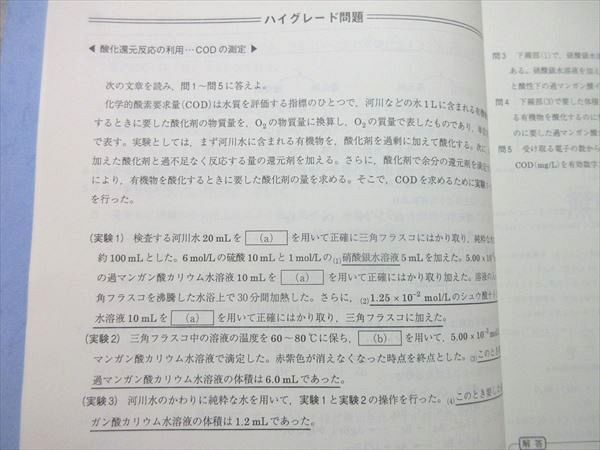 ハイグレード問題
◀ 酸化還元反応の利用…CODの測定 ▶
次の文章を読み，問1～問5に答えよ。
化学的酸素要求量(COD)は水質を評価する指標のひとつで，河川などの水1Lに含まれる有機物
するときに要した酸化剤の物質量を，O₂の物質量に換算し，O₂の質量で表したものであり，単位
で表す。実験としては，まず河川水に含まれる有機物を，酸化剤を過剰に加えて酸化する。次に，
加えた酸化剤と過不足なく反応する量の還元剤を加える。さらに，酸化剤で余分の還元剤を滴定
により，有機物を酸化するときに要した酸化剤の量を求める。そこで，CODを求めるために実験
を行った。
(実験1) 検査する河川水20mLを (a) を用いて正確に三角フラスコにはかり取り，純粋な
約100mLとした。6mol/Lの硫酸10mLと1mol/Lの(1)硝酸銀水溶液5mLを加えた。5.00×10
の過マンガン酸カリウム水溶液10mLを (a) を用いて正確にはかり取り加えた。溶液の入
角フラスコを沸騰した水浴上で30分間加熱した。さらに，(2)1.25×10⁻² mol/Lのシュウ酸ナト
水溶液10mLを (a) を用いて正確にはかり取り，三角フラスコに加えた。
(実験2) 三角フラスコ中の溶液の温度を60～80℃に保ち， (b) を用いて，5.00×10⁻³
マンガン酸カリウム水溶液で滴定した。赤紫色が消えなくなった時点を終点とした。(3)このとき
過マンガン酸カリウム水溶液の体積は6.0mLであった。
(実験3) 河川水のかわりに純粋な水を用いて，実験1と実験2の操作を行った。(4)このとき要した
ガン酸カリウム水溶液の体積は1.2mLであった。
問3 下線部(1)で，硝酸銀水
ある。硝酸銀水溶液を加え
と酸性下の過マンガン酸イ
問4 下線部(3)で要した体積
る有機物を酸化するのに
のに要した過マンガン酸
問5 受け取る電子の数から
COD(mg/L)を有効数字
解答